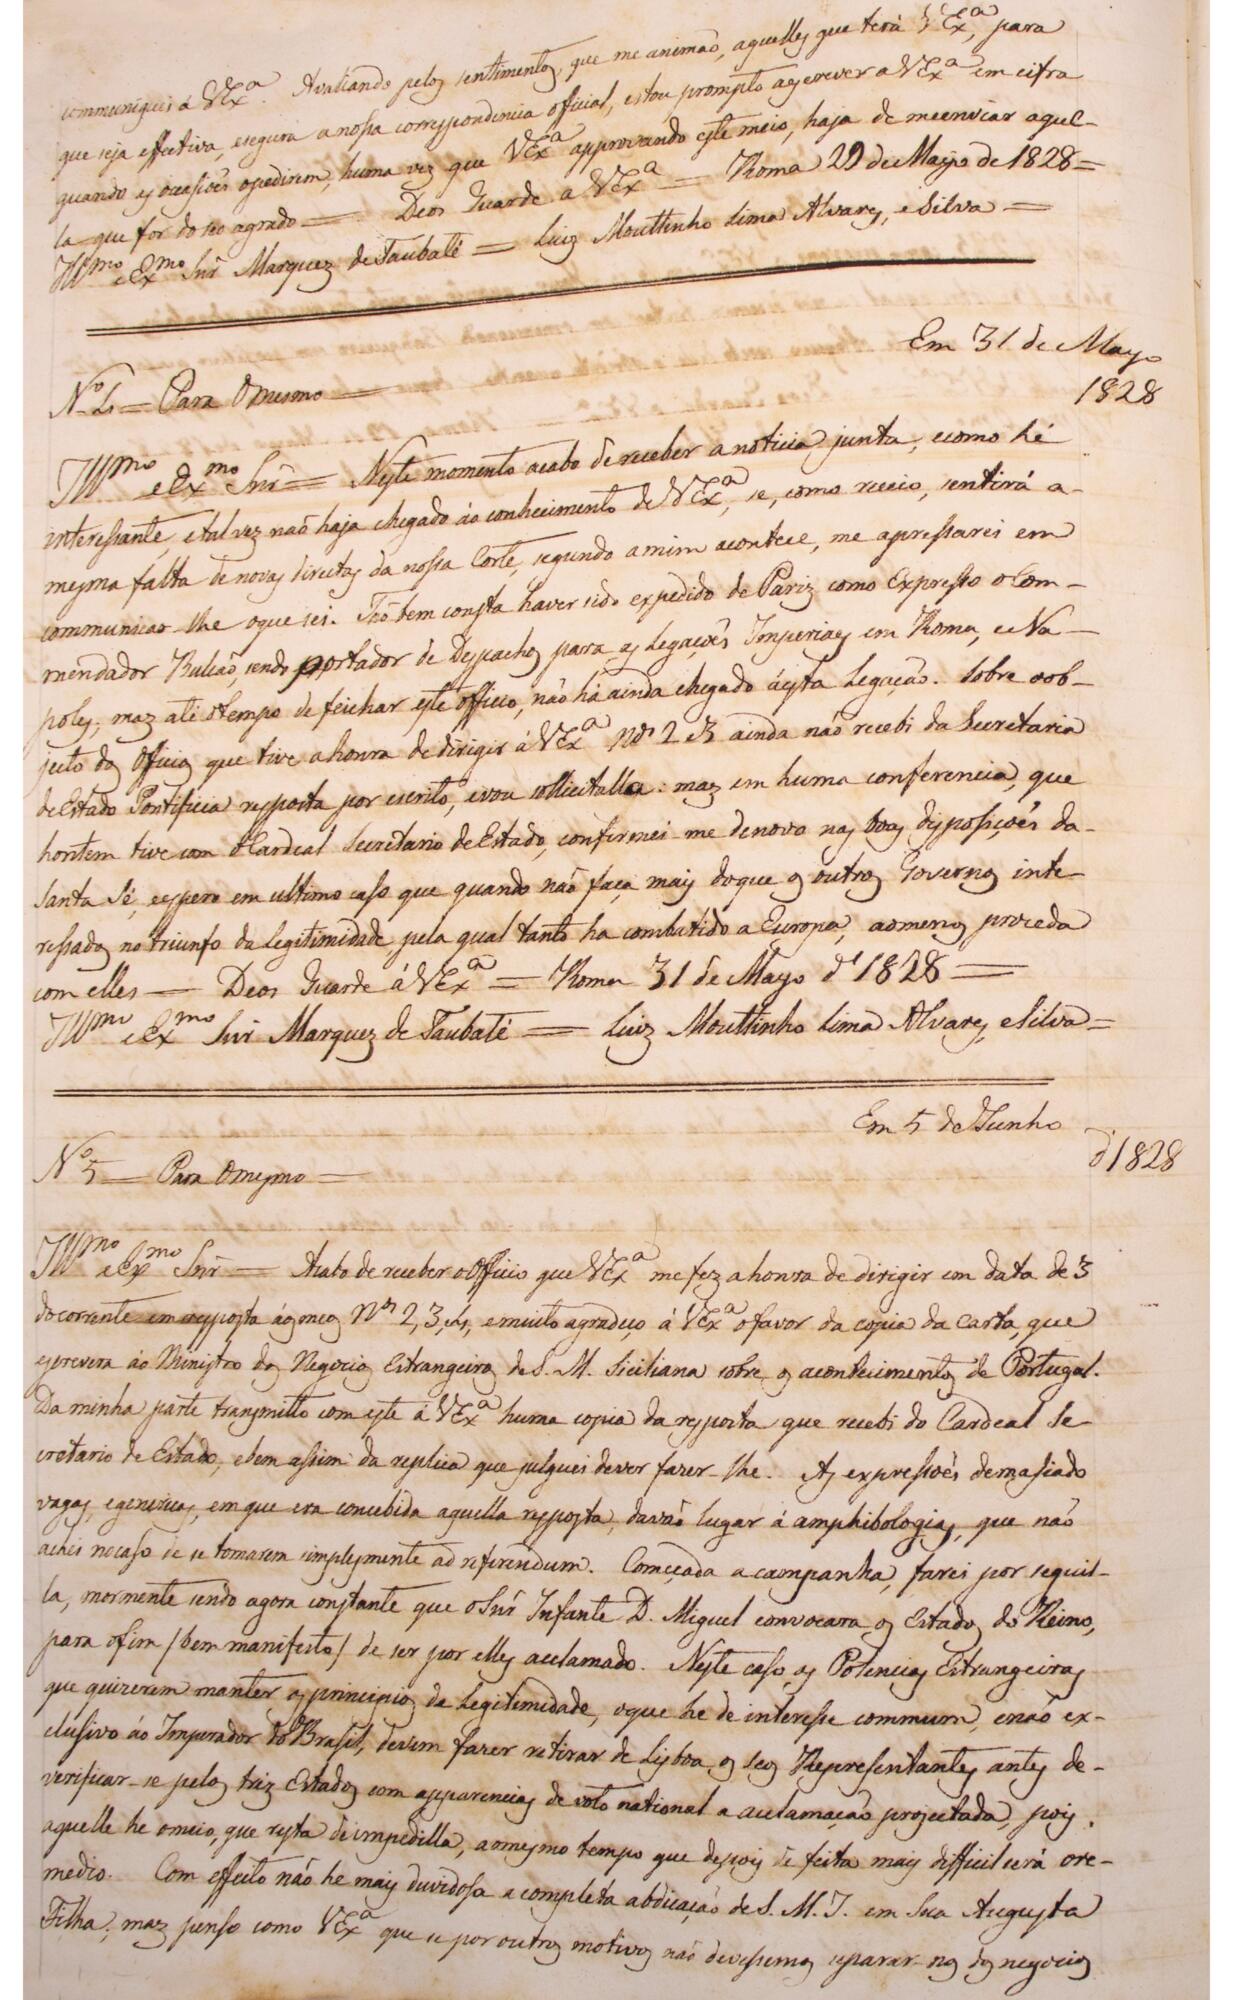 communiquei á VExª. Avaliando pelos sentimentos, que me animaõ, aquelles que terá VExª, para
que seja effectiva, e segura a nossa correspondencia official, estou prompto a escrever a VExª em cifra
quando as occasioẽs o pedirem, huma vez que VExª approvando este meio, haja de me enviar aquel-
la que for do seo agrado = Deos Guarde a VExª = Roma 29 de Mayo de 1828 =
Illmo e Exmo Snr̃ Marquez de Taubaté = Luiz Mouttinho Lima Alvares, e Silva =
Em 31 de Mayo
1828
Nº 4 = Para O mesmo =
Illmo e Exmo Snr̃ = Neste momento acabo de receber a noticia junta, e como hé
interessante, e tal vez naõ haja chegado áo conhecimento de VExª, se, como receio, sentirá a
mesma falta de novas directas da nossa Corte, segundo a mim acontece, me apressarei em
communicar-lhe o que sei. Taõ bem consta haver sido expedido de Pariz como Expresso o Com-
mendador Bulcaõ, sendo portador de Despachos para as Legaçoẽs Imperiaes em Roma, e Na-
poles; mas até o tempo de feichar este officio, naõ há ainda chegado á esta Legaçaõ. Sobre o ob-
jecto dos Officios que tive a honra de dirigir á VExª Nos 2 e 3 ainda naõ recebi da Secretaria
de Estado Pontificia resposta por escrito, e vou sollicitalla: mas em huma conferencia, que
hontem tive com o Cardeal Secretario de Estado, confirmei-me de novo nas boas disposiçoẽs da
Santa Sé, e espero em ultimo caso que quando naõ faça mais do que os outros Governos inte-
ressados no triunfo da legitimidade, pela qual tanto ha combatido a Europa, ao menos proceda
com elles = Deos Guarde á VExª = Roma 31 de Mayo d' 1828 =
Illmo e Exmo Snr̃ Marquez de Taubaté = Luiz Mouttinho Lima Alvares, e Silva =
Em 5 de Junho
d' 1828
Nº 5 = Para O mesmo =
Illmo e Exmo Snr̃ = Acabo de receber o Officio que VExª me fez a honra de dirigir em data de 3
do corrente em resposta áos meos Nos 2, 3, 4, e muito agradeço á VExª o favor da copia da Carta, que
escrevera áo Ministro dos Negocios Estrangeiros de S. M. Siciliana sobre os acontecimentos de Portugal.
Da minha parte transmitto com este á VExª huma copia da resposta que recebi do Cardeal Se-
cretario de Estado, e bem assim da replica que julguei dever fazer-lhe. As expressoẽs demasiado
vagas, e genericas, em que era concebida aquella resposta, davaõ lugar á amphibologias, que naõ
achei no caso de se tomarem simplesmente ad referendum. Começada a campanha, farei por seguil-
la, mormente sendo agora constante que o Snr̃ Infante D. Miguel convocara os Estados do Reino,
para o fim /bem manifesto/ de ser por elles acclamado. Neste caso as Potencias Estrangeiras
que quizerem manter os principios da Legitimidade, o que he de interesse commum, e naõ ex-
clusivo áo Imperador do Brasil, devem fazer retirar de Lisboa os seos Representantes antes de-
verificar-se pelos trez Estados com apparencias de voto national a acclamaçaõ projectada, pois
aquelle he o meio, que resta de impedilla, ao mesmo tempo que depois de feita mais difficil será o re-
medio. Com effeito naõ he mais duvidosa a completa abdicaçaõ de S. M. I. em Sua Augusta
Filha; mas penso como VExª que se por outros motivos naõ devessemos separar-nos dos negocios